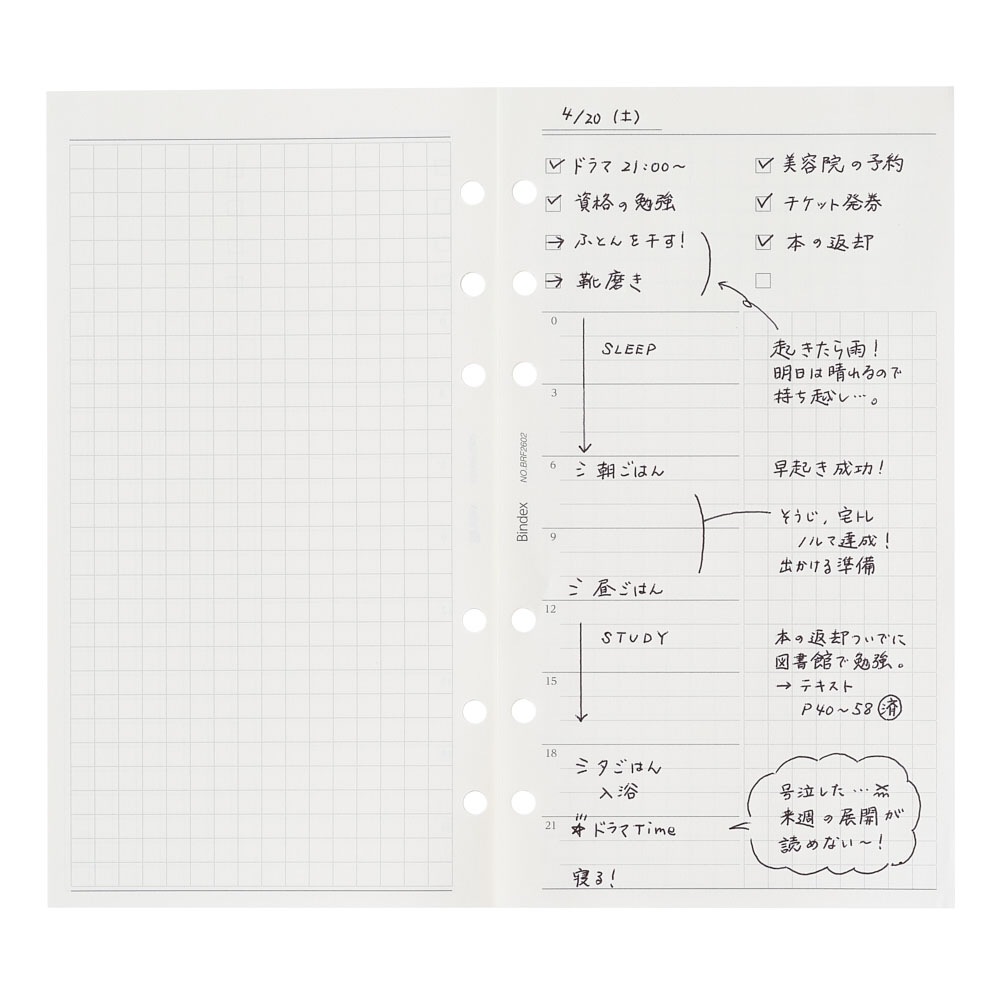 4/20 (土)
ドラマ 21:00〜
資格の勉強
ふとんを干す!
靴磨き
美容院の予約
チケット発券
本の返却
0
SLEEP
起きたら雨!
明日は晴れるので
持ち越し…。
3
6
ミ 朝ごはん
早起き成功!
9
そうじ, 宅トレ
ノルマ達成!
出かける準備
ミ 昼ごはん
12
STUDY
本の返却ついでに
図書館で勉強。
→ テキスト
P40〜58 済
15
18
ミ 夕ごはん
入浴
21
ドラマTime
号泣した…
来週の展開が
読めない〜!
寝る!
Bindex NO.BRF2602